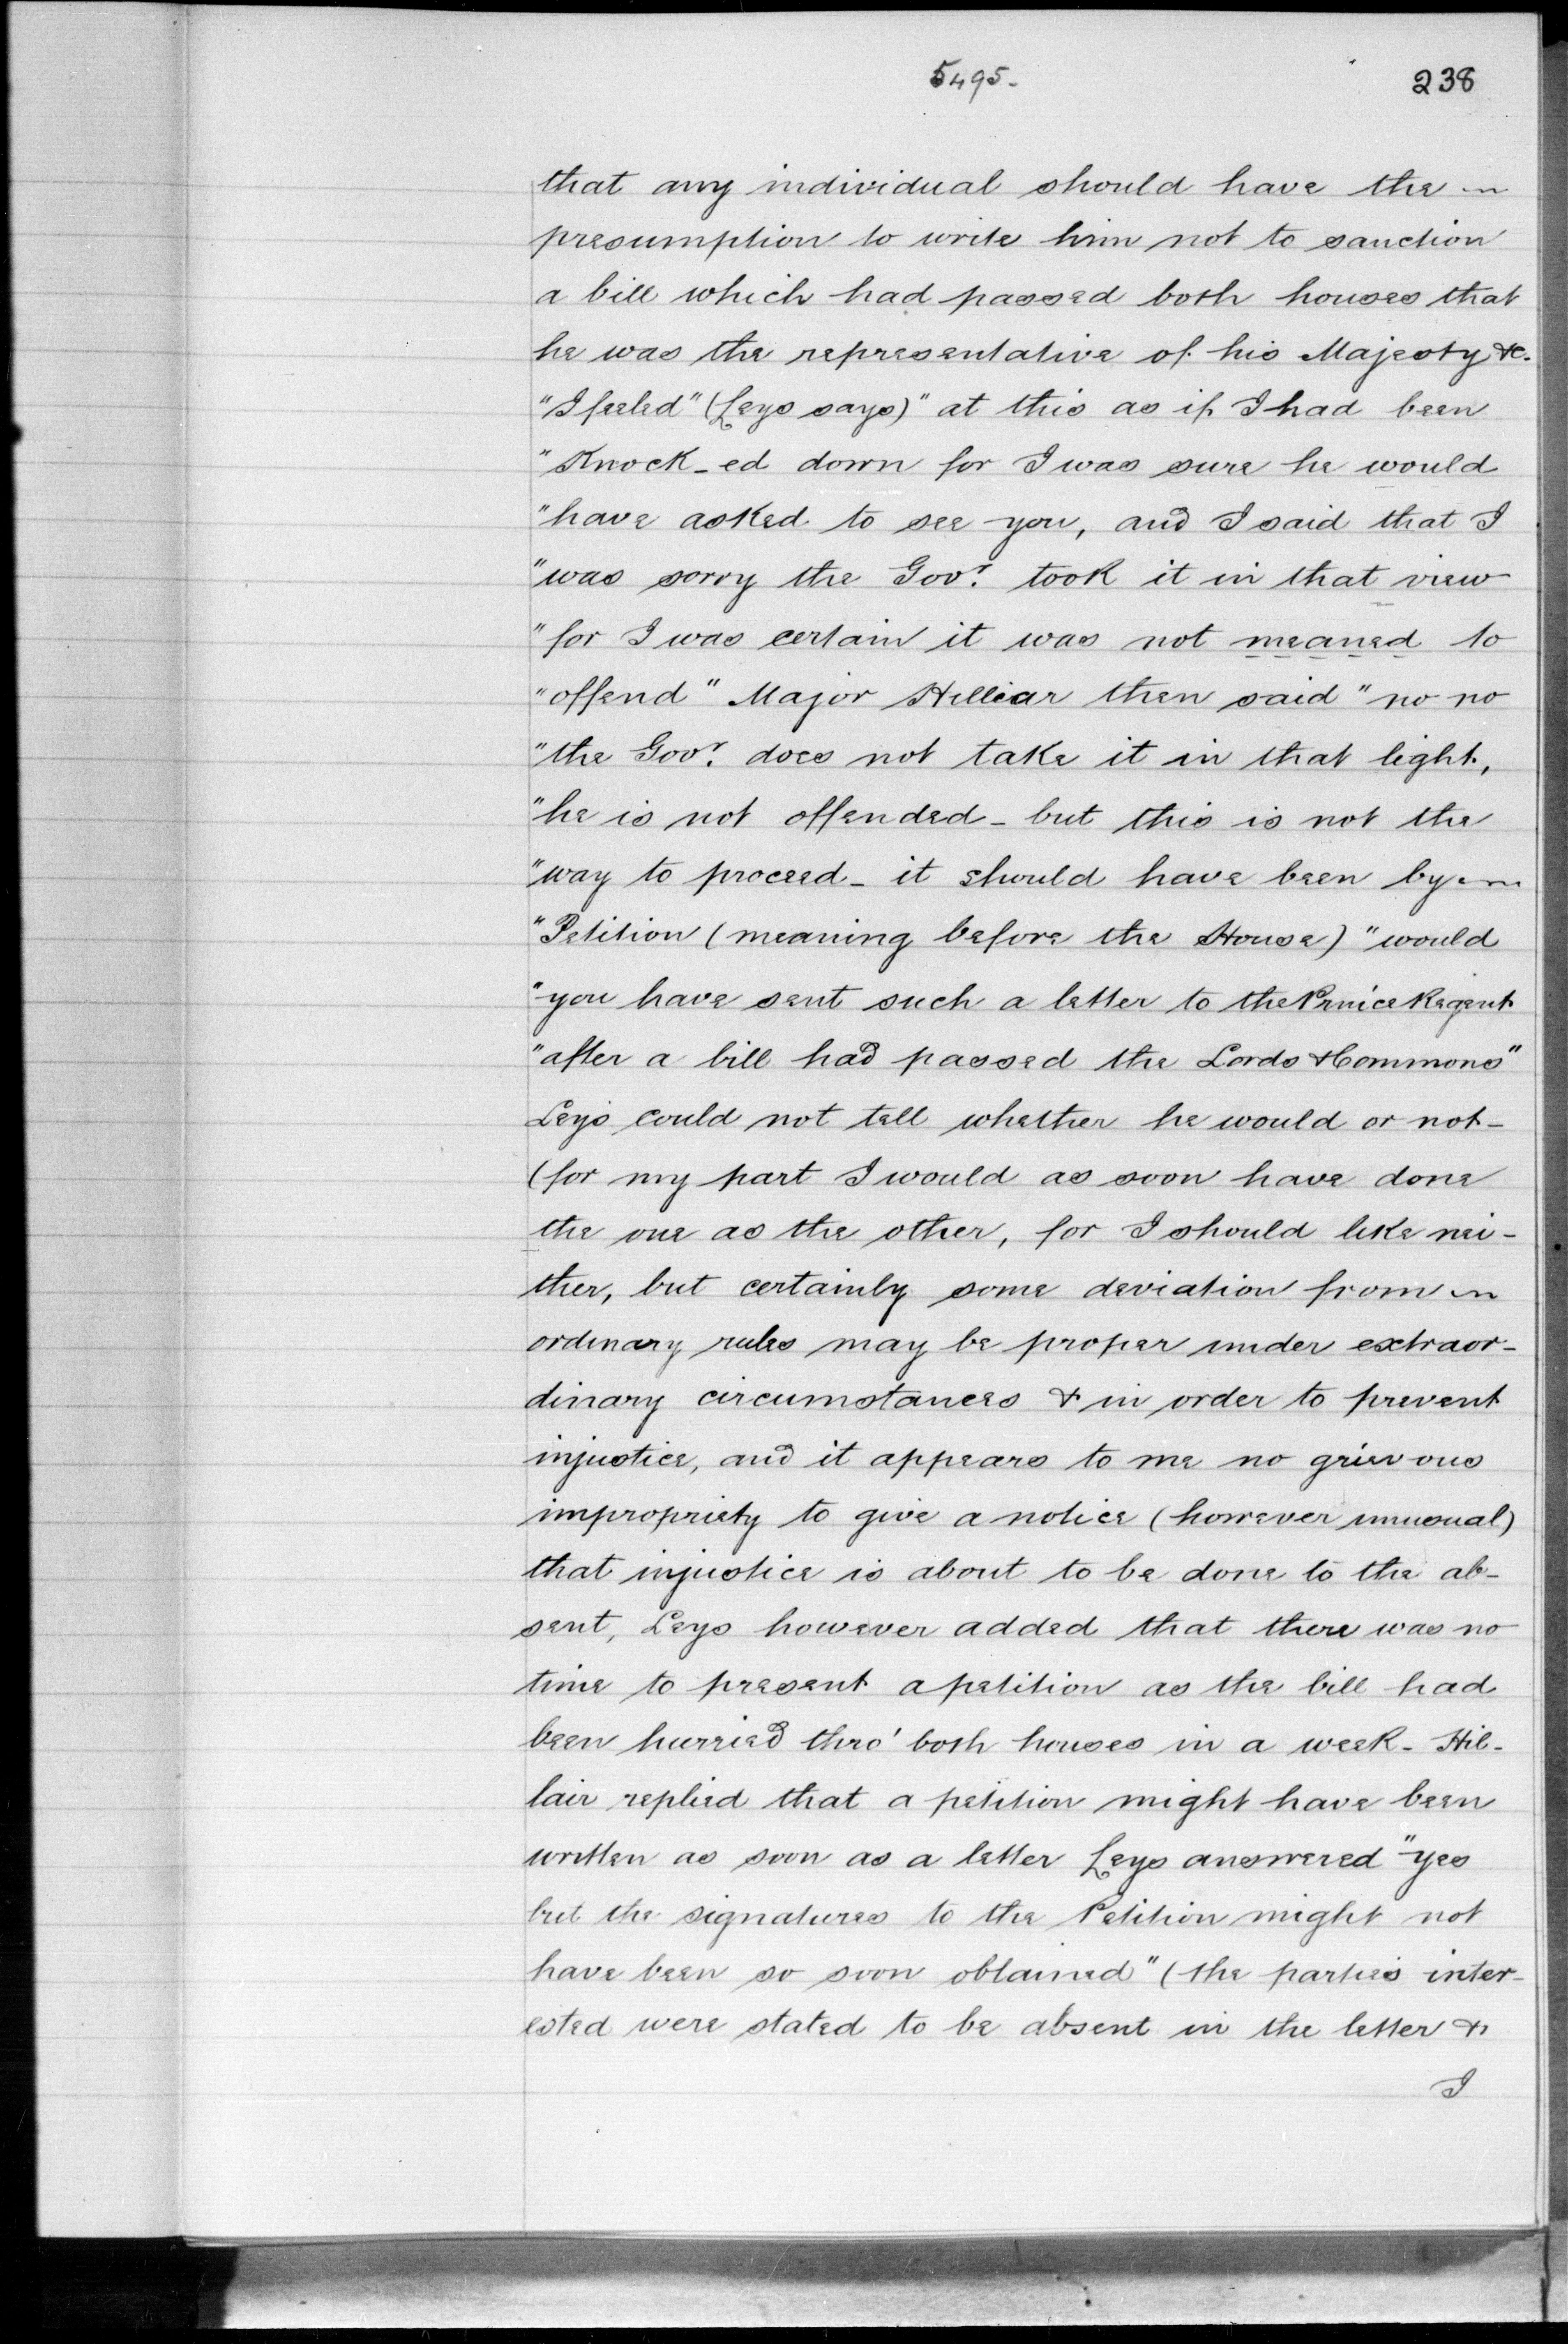 5495.
238
that any individual should have the
presumption to write him not to sanction
a bill which had passed both houses that
he was the representative of his Majesty &c.
"I feeled" (Leys says) "at this as if I had been
"Knock-ed down for I was sure he would
"have asked to see you, and I said that I
"was sorry the Govr. took it in that view
"for I was certain it was not meaned to
"offend" Major Hilliar then said "no no
"the Govr. does not take it in that light,
"he is not offended - but this is not the
"way to proceed - it should have been by
"Petition (meaning before the House) "would
"you have sent such a letter to the Prince Regent
"after a bill had passed the Lords & Commons"
Leys could not tell whether he would or not -
(for my part I would as soon have done
the one as the other, for I should like nei-
ther, but certainly some deviation from
ordinary rules may be proper under extraor-
dinary circumstances & in order to prevent
injustice, and it appears to me no grievous
impropriety to give a notice (however unusual)
that injustice is about to be done to the ab-
sent, Leys however added that there was no
time to present a petition as the bill had
been hurried thro' both houses in a week - Hil-
lair replied that a petition might have been
written as soon as a letter Leys answered "yes
but the signatures to the Petition might not
have been so soon obtained" (the parties inter-
ested were stated to be absent in the letter &
I